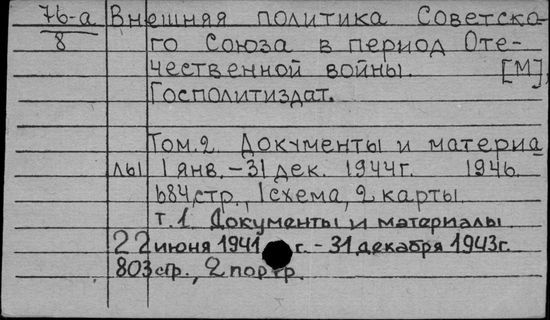 76-а Внешняя политика Советско-
8 го Союза в период Оте-
чественной войны. [М]
Госполитиздат.
Том.2. Документы и материа
лы 1 янв. - 31 дек. 1944г. 1946.
684стр., 1схема, 2 карты.
т.1. Документы и материалы
22 июня 1941 г. - 31 декабря 1943г.
803стр., 2 портр.